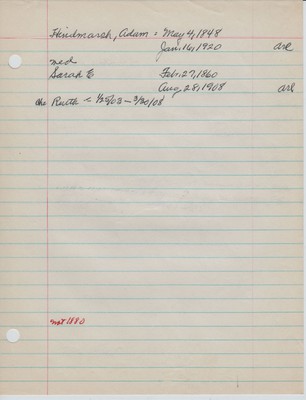 Hindmarsh, Adam = May 4, 1848
Jan. 16, 1920 arl
med
Sarah E Feb. 27, 1860
Aug 28, 1908 arl
che Ruth = - 3/30/08
not 1880